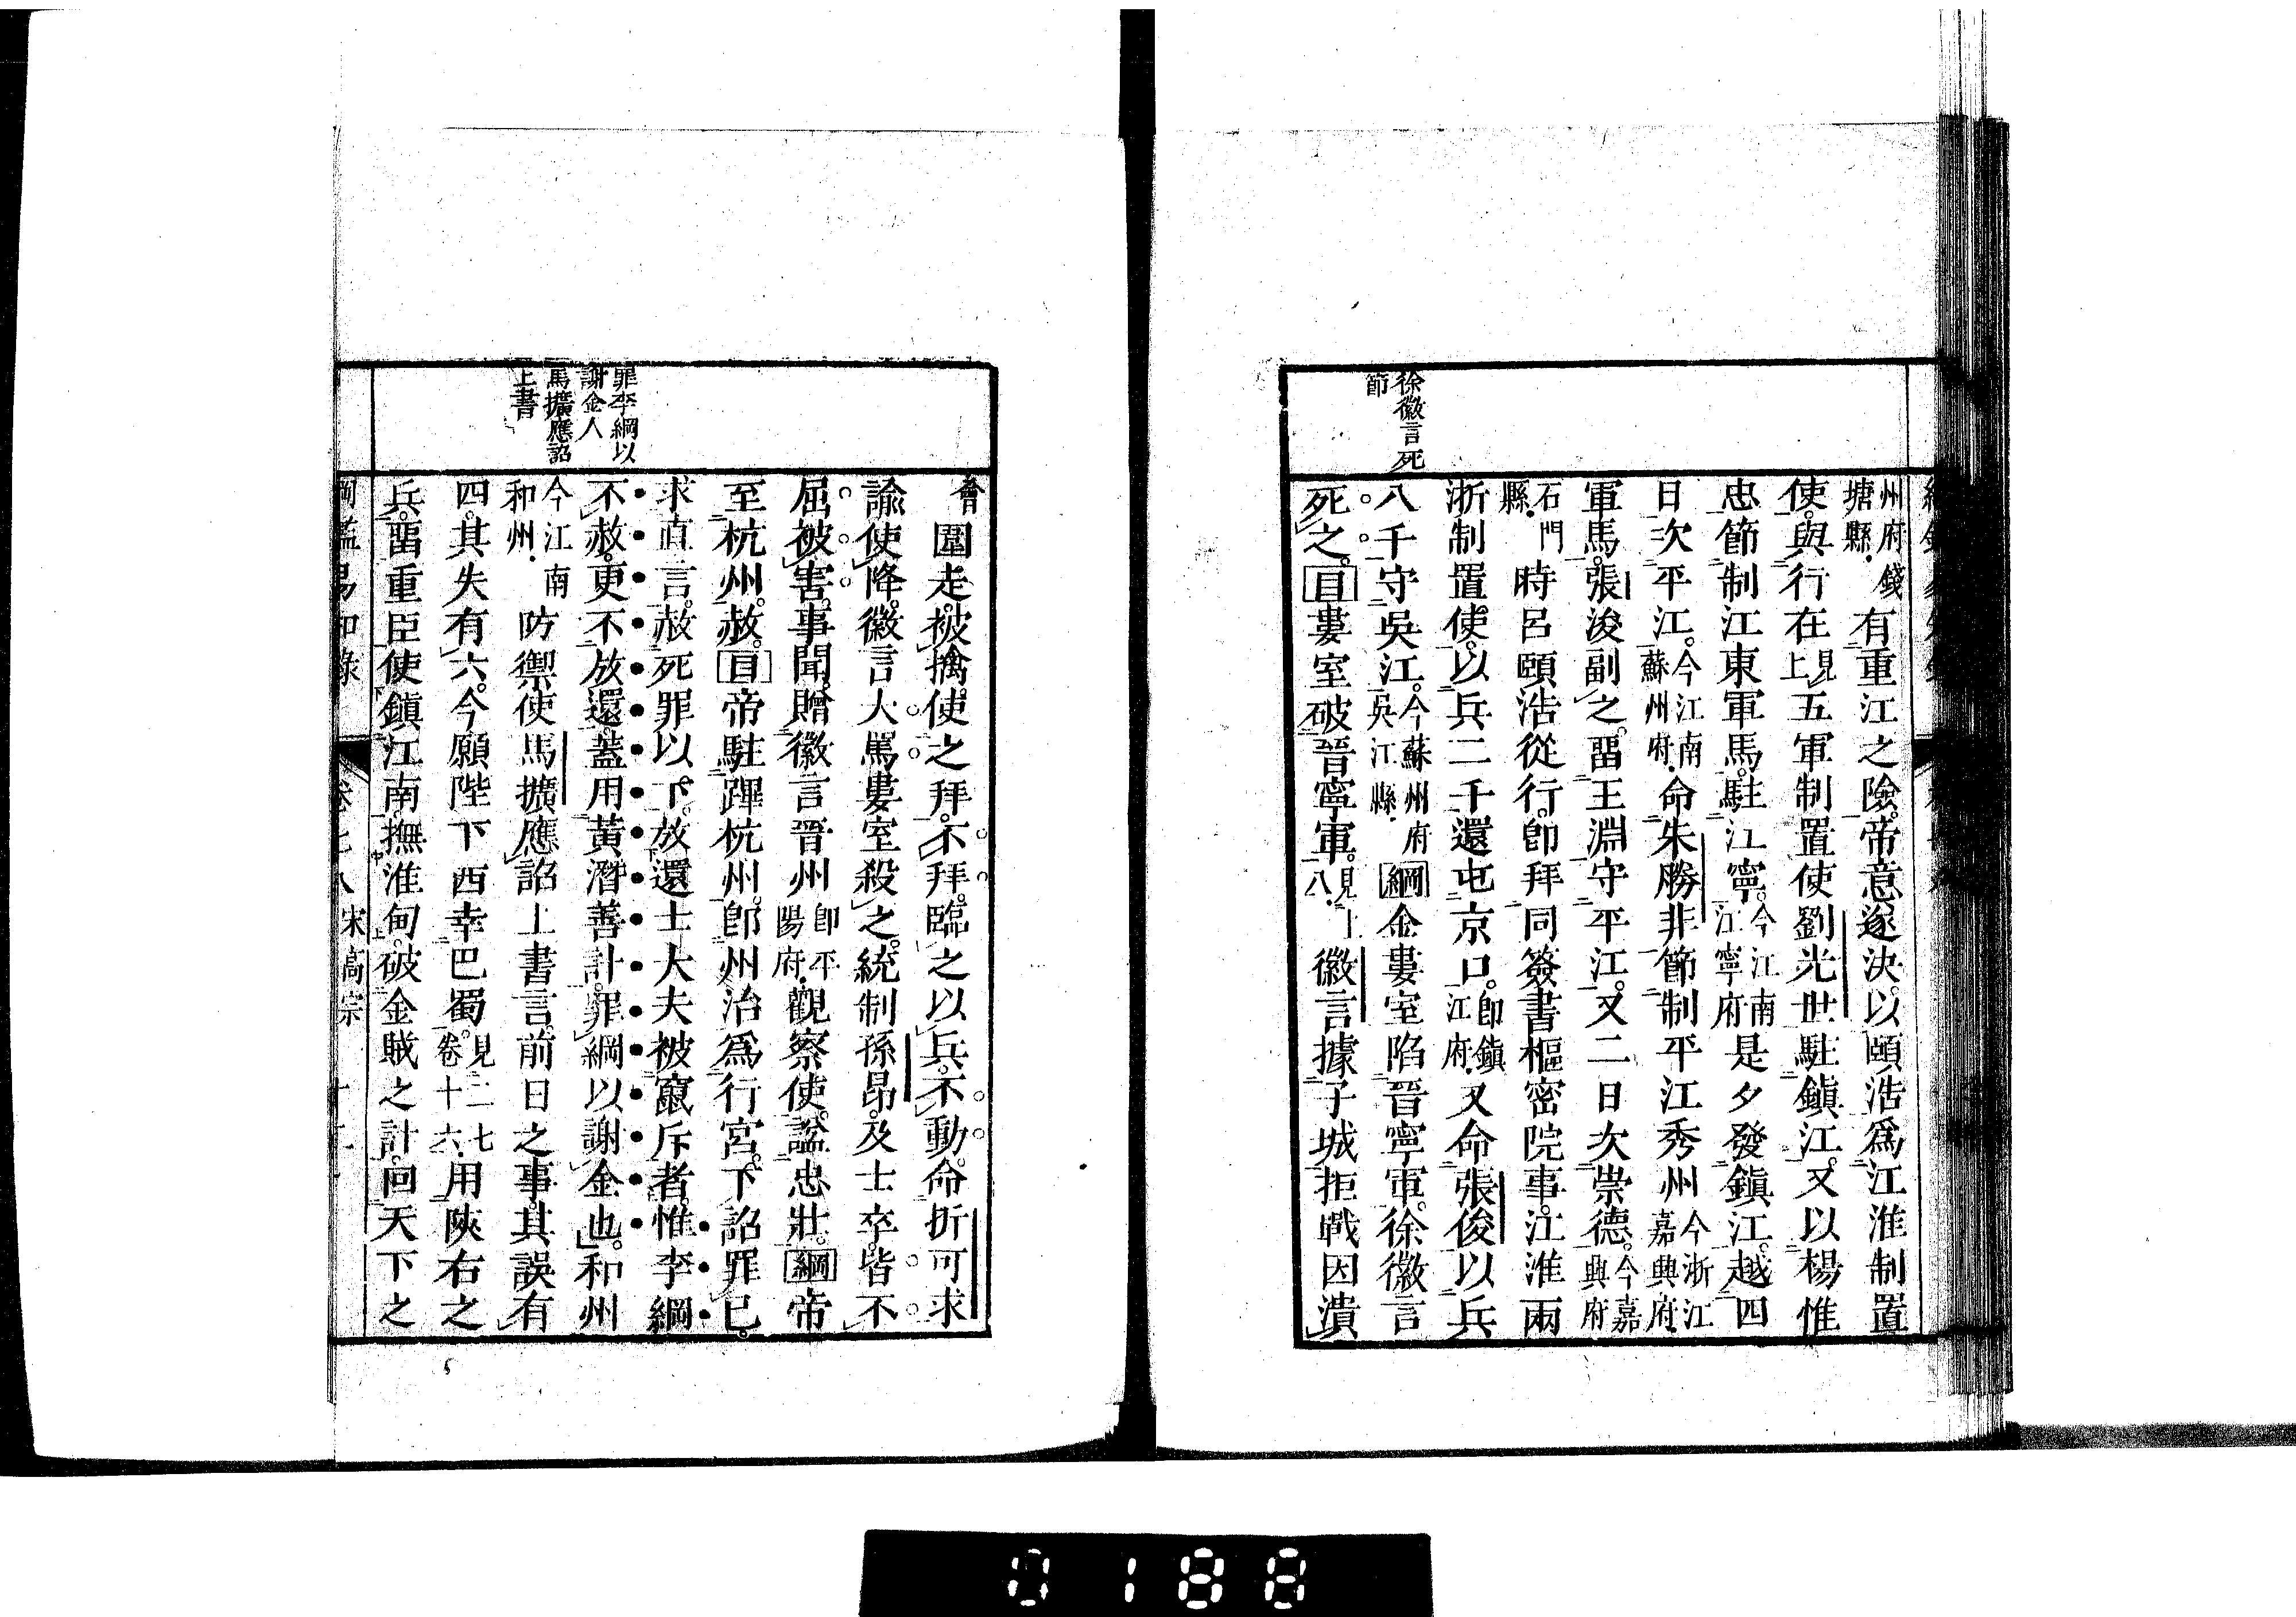 徐徽言死
節
州府錢塘縣有重江之險帝意遂決以頤浩爲江淮制置
使與行在見上五軍制置使劉光世駐鎭江又以楊惟
忠節制江東軍馬駐江寧今江南江寧府是夕發鎭江越四
日次平江今江南蘇州府命朱勝非節制平江秀州今浙江嘉興府
軍馬張浚副之畱王淵守平江又二日次崇德今嘉興府
石門縣時呂頤浩從行卽拜同簽書樞密院事江淮兩
浙制置使以兵二千還屯京口卽鎭江府又命張俊以兵
八千守吳江今蘇州府吳江縣綱金婁室陷晉寧軍徐徽言
死之目婁室破晉寧軍見上八徽言據子城拒戰因潰
罪李綱以
謝金人
馬擴應詔
上書
圍走被擒使之拜不拜臨之以兵不動命折可求
諭使降徽言大罵婁室殺之統制孫昂及士卒皆不
屈被害事聞贈徽言晉州卽平陽府觀察使諡忠壯綱帝
至杭州赦目帝駐蹕杭州卽州治爲行宮下詔罪已
求直言赦死罪以下放還士大夫被竄斥者惟李綱
不赦更不放還蓋用黃潛善計罪綱以謝金也和州
今江南和州防禦使馬擴應詔上書言前日之事其誤有
四其失有六今願陛下西幸巴蜀見二七卷十六用陝右之
兵畱重臣使鎭江南撫淮甸破金賊之計回天下之
綱鑑易知錄 卷七八 宋高宗
0188